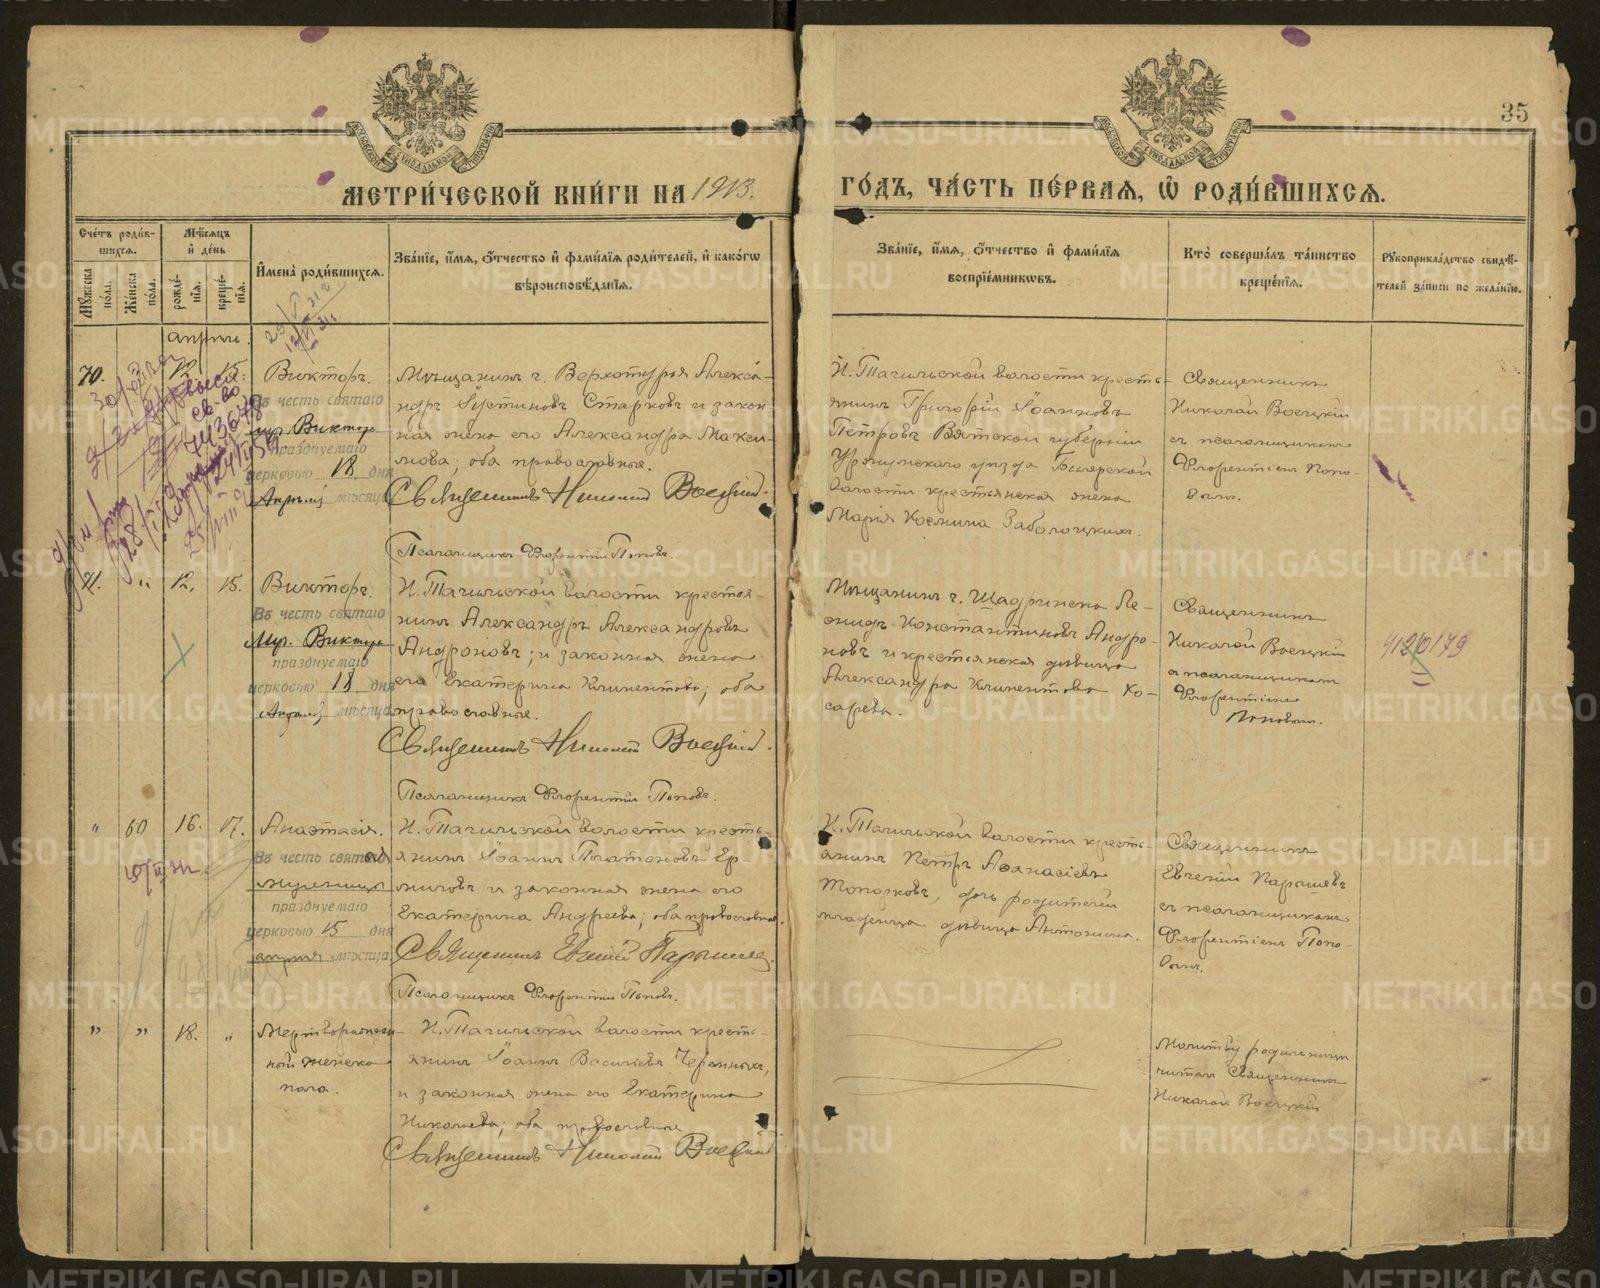 35
МЕТРИ́ЧЕСКОЙ КНИ́ГИ НА 1913.
ГО́ДЪ, ЧА́СТЬ ПЕ́РВАѦ, Ѽ РОДИ́ВШИХСѦ.
Счётъ роди́в-
шихсѧ.
Мѣ́сѧцъ
и де́нь
Мꙋ́жеска
пола.
Же́нска
пола.
рожде́-
нїѧ.
креще́-
нїѧ.
И҆мена̀ роди́вшихсѧ.
Зва́нїе, и҆́мѧ, ѻ҆́тчество и҆ фами́лїѧ роди́телей, и҆ како́гѡ
вѣроисповѣ́данїѧ.
Зва́нїе, и҆́мѧ, ѻ҆́тчество и҆ фами́лїѧ
воспрїе́мниковъ.
Кто̀ соверша́лъ та́инство
креще́нїѧ.
Рꙋкоприкла́дство свидѣ́-
телей за́писи по жела́нїю.
апрѣль.
70.
15.
Викторъ.
Въ честь святаго
муч. Виктора
празднуемаго
церковью 18 дня
Апрѣля мѣсяца
Мѣщанинъ г. Верхотурья Алекса-
ндръ Іустиновъ Старковъ и закон
ная жена его Александра Макси-
мова; оба православные.
Священникъ Николай Воецкій.
Псаломщикъ Флорентій Поповъ.
Н. Тагильской волости кресть-
янинъ Григорій Іоанновъ
Петровъ Вятской губерніи
Уржумскаго уѣзда Билярской
волости крестьянская жена
Марія Косьмина Заболоцкихъ.
Священникъ
Николай Воецкій
съ псаломщикомъ
Флорентіемъ Попо-
вымъ.
71.
„
12.
15.
Викторъ.
Въ честь святаго
Муч. Виктора
празднуемаго
церковью 18 дня
Апрѣля мѣсяца
Н. Тагильской волости крестья-
нинъ Александръ Александровъ
Андроновъ; и законная жена
его Екатерина Климентова; оба
православные.
Священникъ Николай Воецкій.
Псаломщикъ Флорентій Поповъ.
Мѣщанинъ г. Шадринска Ле-
онидъ Константиновъ Андро-
новъ и крестьянская дѣвица
Александра Климентова Ко-
сарева.
Священникъ
Николай Воецкій
съ псаломщикомъ
Флорентіемъ
Поповымъ.
4120179
„
60
16.
17.
Анастасія.
Въ честь святой
мученицы
празднуемаго
церковью 15 дня
апрѣля мѣсяца
Н. Тагильской волости кресть-
янинъ Іоаннъ Платоновъ Ер
миловъ и законная жена его
Екатерина Андреева; оба православные.
Священникъ Евгеній Парышевъ.
Псаломщикъ Флорентій Поповъ.
Н. Тагильской волости кресть-
янинъ Петръ Аѳанасіевъ
Топорковъ, дочь родителей
младенца дѣвица Антонина.
Священникъ
Евгеній Парышевъ
съ псаломщикомъ
Флорентіемъ Попо-
вымъ.
„
„
18.
„
Мертворожден-
ный женска
пола.
Н. Тагильской волости кресть-
янинъ Іоаннъ Василіевъ Черемныхъ,
и законная жена его Екатерина
Николаева; оба православные
Священникъ Николай Воецкій
Молитву родильницѣ
читалъ Священникъ
Николай Воецкій
METRIKI.GASO-URAL.RU